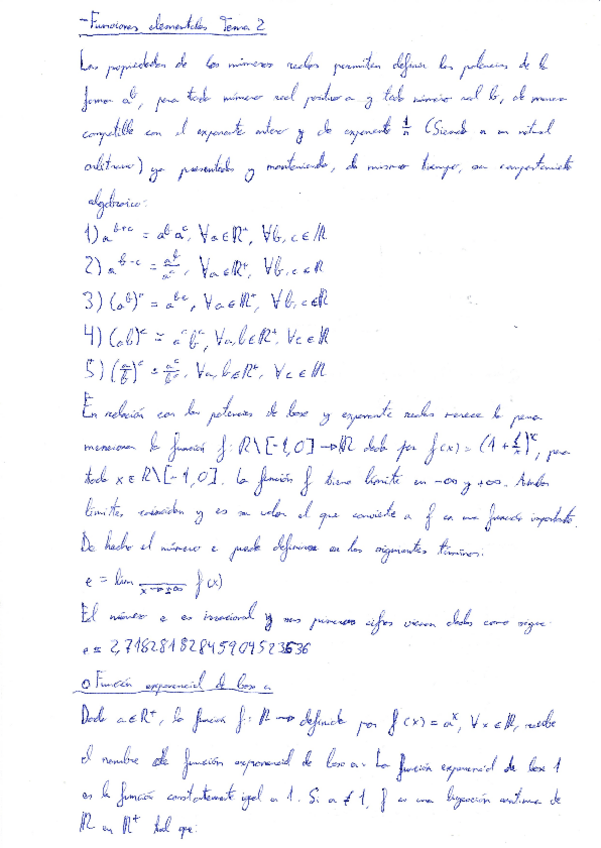 -Funciones elementales Tema 2
Las propiedades de los números reales permiten definir las potencias de la
forma a^b, para todo número real positivo a y todo número real b, de manera
compatible con el exponente entero y de exponente 1/n (Siendo n un natural
arbitrario) ya presentados y manteniendo, al mismo tiempo, su comportamiento
algebraico:
1) a^{b+c} = a^b a^c, ∀a∈ℝ⁺, ∀b,c∈ℝ
2) a^{b-c} = a^b/a^c, ∀a∈ℝ⁺, ∀b,c∈ℝ
3) (a^b)^c = a^{bc}, ∀a∈ℝ⁺, ∀b,c∈ℝ
4) (ab)^c = a^c b^c, ∀a,b∈ℝ⁺, ∀c∈ℝ
5) (a/b)^c = a^c/b^c, ∀a,b∈ℝ⁺, ∀c∈ℝ
En relación con las potencias de base y exponente reales merece la pena
mencionar la función f: ℝ\[-1,0] → ℝ dada por f(x) = (1+1/x)^x, para
todo x∈ℝ\[-1,0]. La función f tiene límite en -∞ y +∞. Ambos
límites coinciden y es su valor el que convierte a f en una función importante.
De hecho el número e puede definirse en los siguientes términos:
e = lim x→±∞ f(x)
El número e es irracional y sus primeras cifras vienen dadas como sigue:
e = 2,71828182845904523536
o Función exponencial de base a
Dado a∈ℝ⁺, la función f: ℝ → definida por f(x) = a^x, ∀x∈ℝ, recibe
el nombre de función exponencial de base a. La función exponencial de base 1
es la función constantemente igual a 1. Si a ≠ 1, f es una biyección continua de
ℝ en ℝ⁺ tal que: